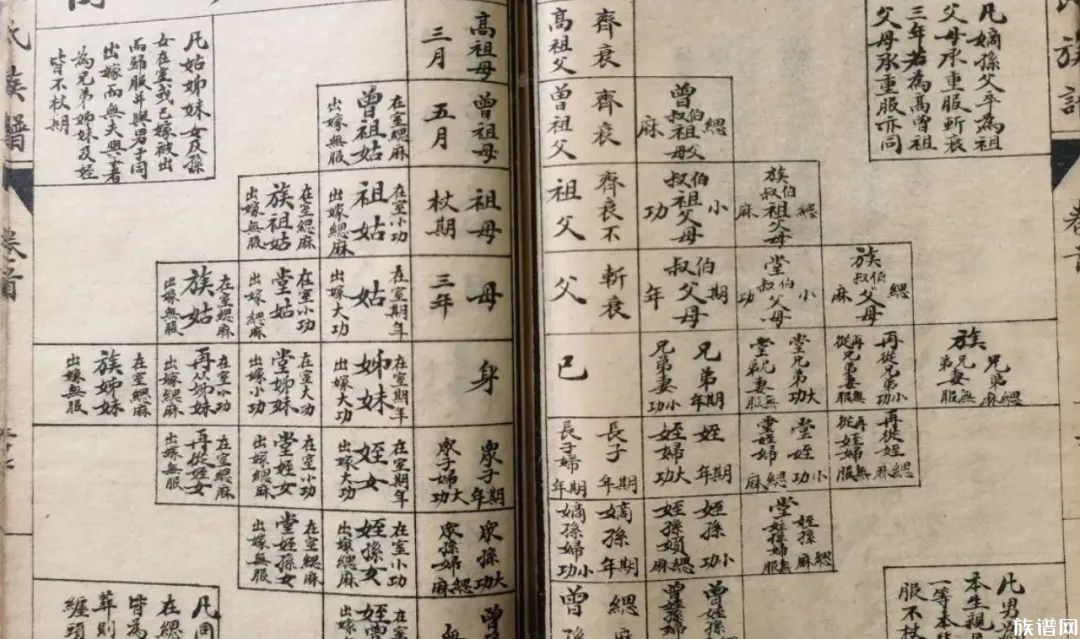 凡嫡孫父卒為祖
父母承重服斬衰
三年若為高曾祖
父母承重服亦同
齊衰
高祖父
齊衰
曾祖父
曾伯叔祖父母
緦麻
齊衰不
祖父
伯叔祖父母
小功
族伯叔祖父母
緦麻
斬衰
父
伯叔父母
期年
堂伯叔父母
小功
族伯叔父母
緦麻
己
兄弟期年
兄弟妻小功
堂兄弟大功
堂兄弟妻無服
再從兄弟小功
再從兄弟妻無服
族兄弟緦麻
族兄弟妻無服
長子期年
長子婦期年
姪期年
姪婦大功
堂姪小功
堂姪婦緦麻
再從姪緦麻
再從姪婦無服
嫡孫期年
嫡孫婦小功
姪孫小功
姪孫婦緦麻
堂姪孫緦麻
堂姪孫婦無服
緦
曾
曾姪孫
曾姪孫
凡男
本生親
一等本
服不杖
氏族譜
卷首
高祖母
三月
曾祖母
五月
在室緦麻
曾祖姑
出嫁無服
祖母
杖期
在室小功
祖姑
出嫁緦麻
在室緦麻
族祖姑
出嫁無服
母
三年
在室期年
姑
出嫁大功
在室小功
堂姑
出嫁緦麻
在室緦麻
族姑
出嫁無服
身
在室期年
姊妹
出嫁大功
在室大功
堂姊妹
出嫁小功
在室小功
再從姊妹
出嫁緦麻
在室緦麻
族姊妹
出嫁無服
眾子期年
眾子婦大功
在室期年
姪女
出嫁大功
在室小功
堂姪女
出嫁緦麻
在室緦麻
再從姪女
出嫁無服
眾孫大功
眾孫婦緦麻
在室小功
姪孫女
出嫁緦麻
在室緦麻
堂姪孫女
出嫁無服
曾
無
在室緦
曾姪
出嫁無
凡姑姊妹女及孫
女在室或已嫁被出
而歸服並與男子同
出嫁而無夫與子者
為兄弟姊妹及姪
皆不杖期
凡同
在緦
皆為
葬則
纏頭
氏族譜
卷首
族谱网